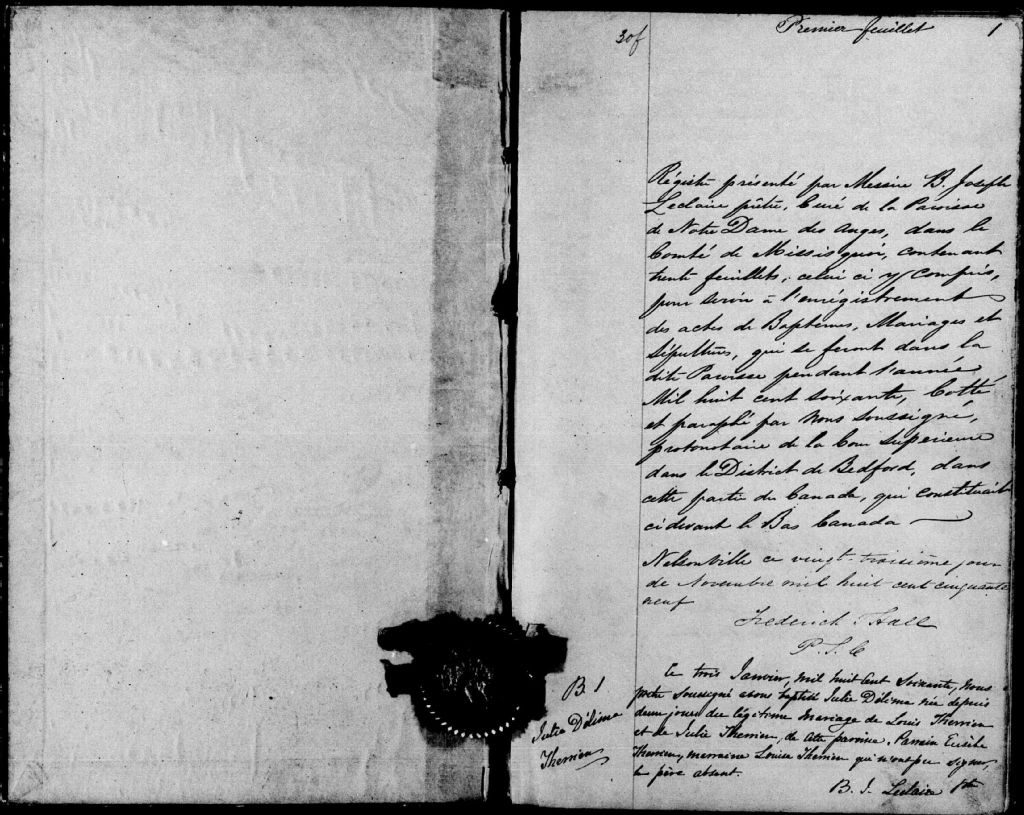 30f
Premier feuillet 1
Régistre présenté par Messire B. Joseph
Leclaire prêtre, Curé de la Paroisse
de Notre Dame des Anges, dans le
Comté de Missisquoi, contenant
trente feuillets, celui ci y compris,
pour servir à l'enrégistrement
des actes de Baptêmes, Mariages et
Sépultures, qui se feront dans la
dite Paroisse pendant l'année
Mil huit cent soixante, Cotté
et paraphé par nous soussigné,
protonotaire de la Cour Supérieure
dans le District de Bedford, dans
cette partie du Canada, qui constituait
ci devant le Bas Canada
Nelsonville ce vingt-troisième jour
de Novembre mil huit cent cinquante
neuf
Frederick Hall
P. S. C
B. 1
Julie Délima
Therrien
Le trois Janvier, mil huit cent soixante, nous
prêtre soussigné avons baptisé Julie Délima née depuis
deux jours du légitime mariage de Louis Therrien
et de Julie Therrien, de cette paroisse. Parrain Eusèbe
Therrien, marraine Louise Therrien qui n'ont pu signer,
le père absent.
B. J. Leclaire Ptre